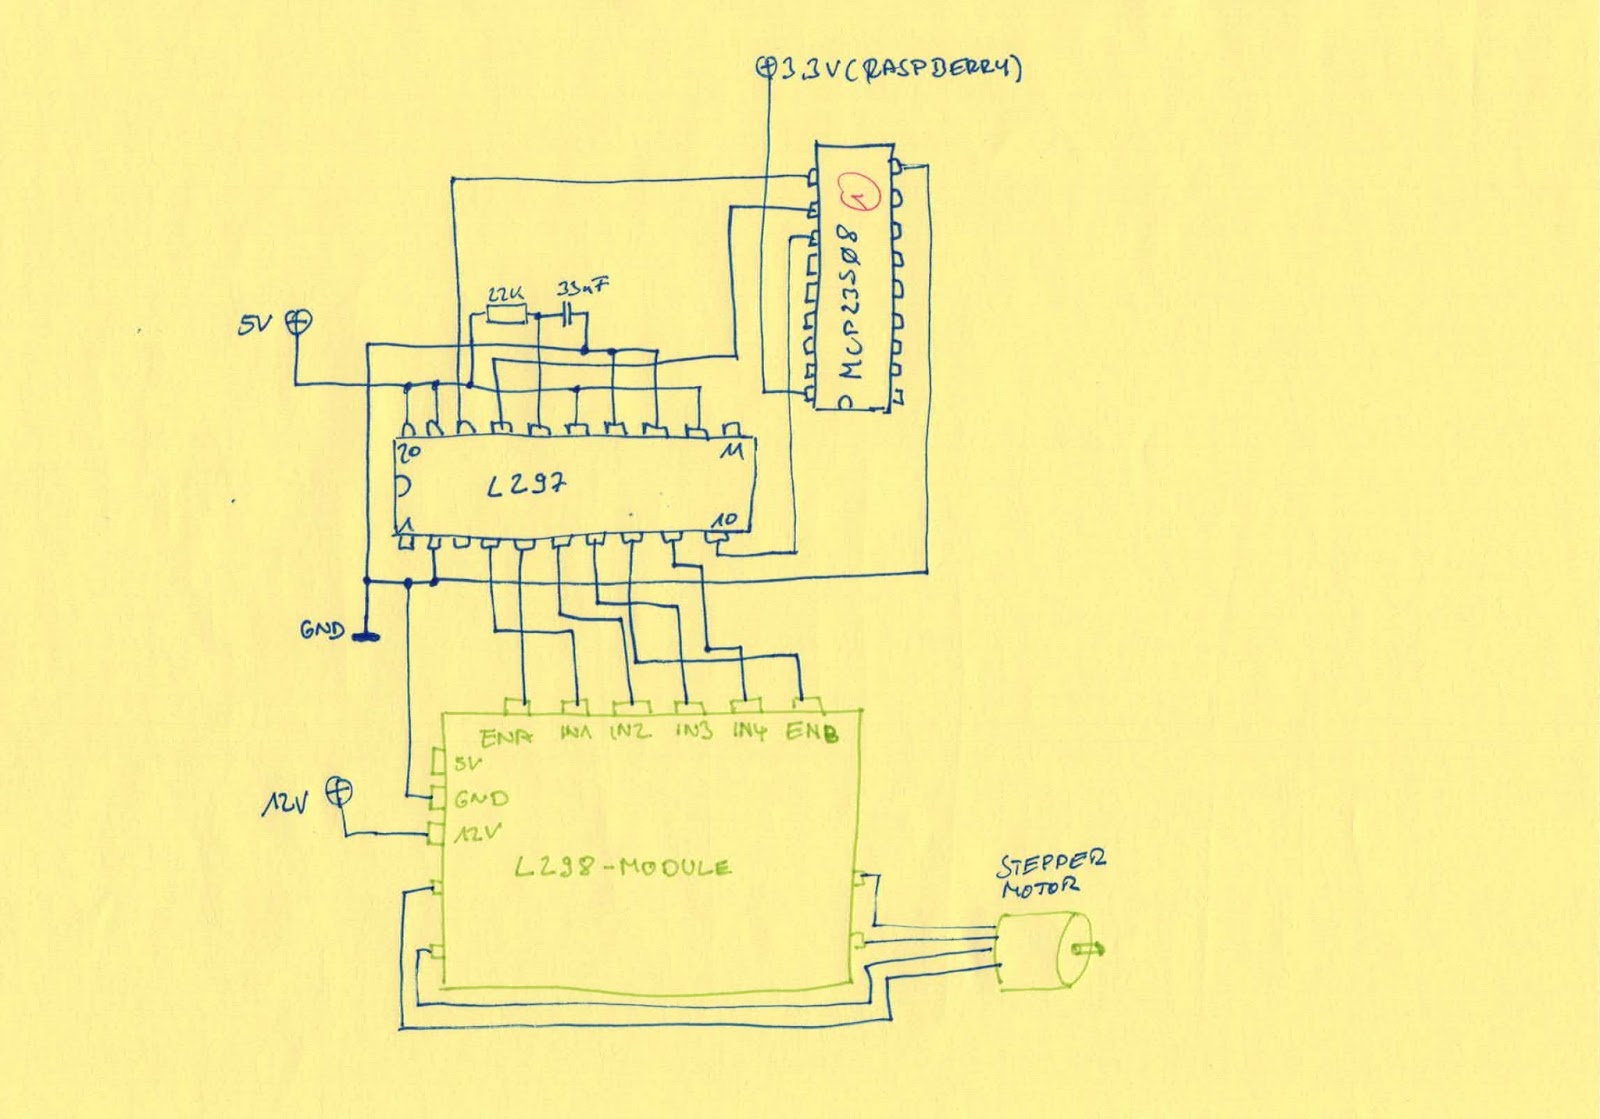 3.3V (RASPBERRY)
1
MCP23S08
22K
33nF
5V
20
11
L297
1
10
GND
ENA IN1 IN2 IN3 IN4 ENB
5V
GND
12V
12V
L298-MODULE
STEPPER
MOTOR